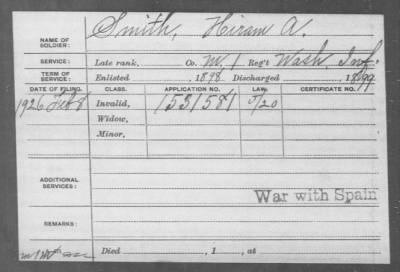 NAME OF SOLDIER: Smith, Hiram A.
SERVICE: Late rank, Co. M, 1 Reg't Wash. Inf.
TERM OF SERVICE: Enlisted 1898 Discharged 1899
DATE OF FILING. CLASS. APPLICATION NO. LAW. CERTIFICATE NO.
1926 Feb 8 Invalid, 1531581 J/20
Widow,
Minor,
ADDITIONAL SERVICES:
War with Spain
REMARKS:
Died , 1 , at